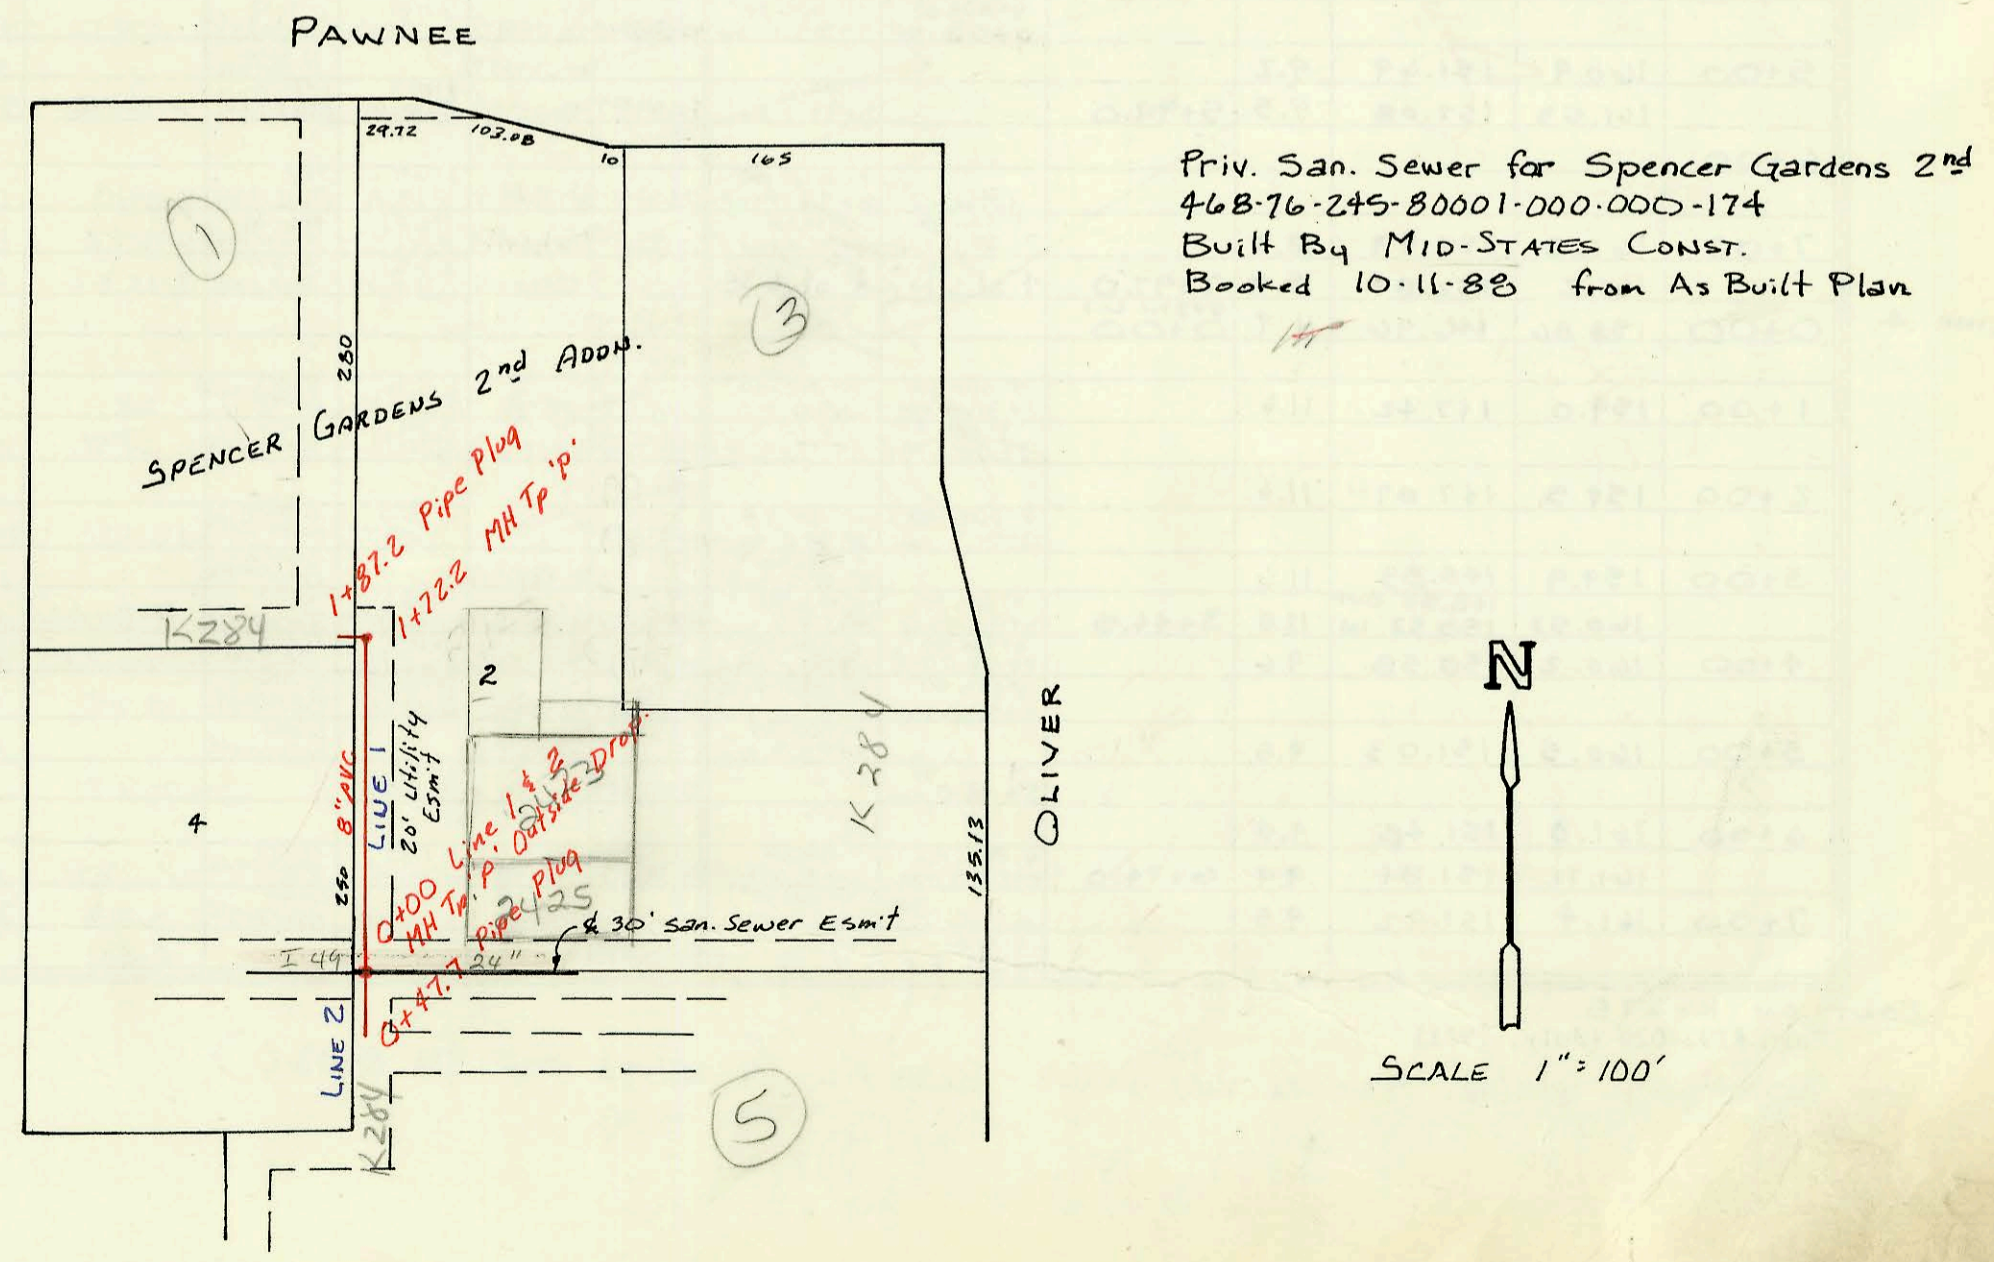 PAWNEE
29.72
103.08
10
165
Priv. San. Sewer for Spencer Gardens 2nd
468-76-245-80001-000-000-174
Built By MID-STATES CONST.
Booked 10-11-88 from As Built Plan
1
3
280
SPENCER GARDENS 2nd ADDN.
1+87.2 Pipe Plug
1+72.2 MH Tp 'P'
K284
2
4
8" PVC
LINE 1
20' Utility
Esmt
250
0+00 Line 1 & 2
MH Tp. 'P' Outside Drop.
0+47.7 Pipe Plug
2423
2425
K 284
OLIVER
135.13
℄ 30' San. Sewer Esm't
I 49
24"
LINE 2
K284
5
N
SCALE 1" = 100'